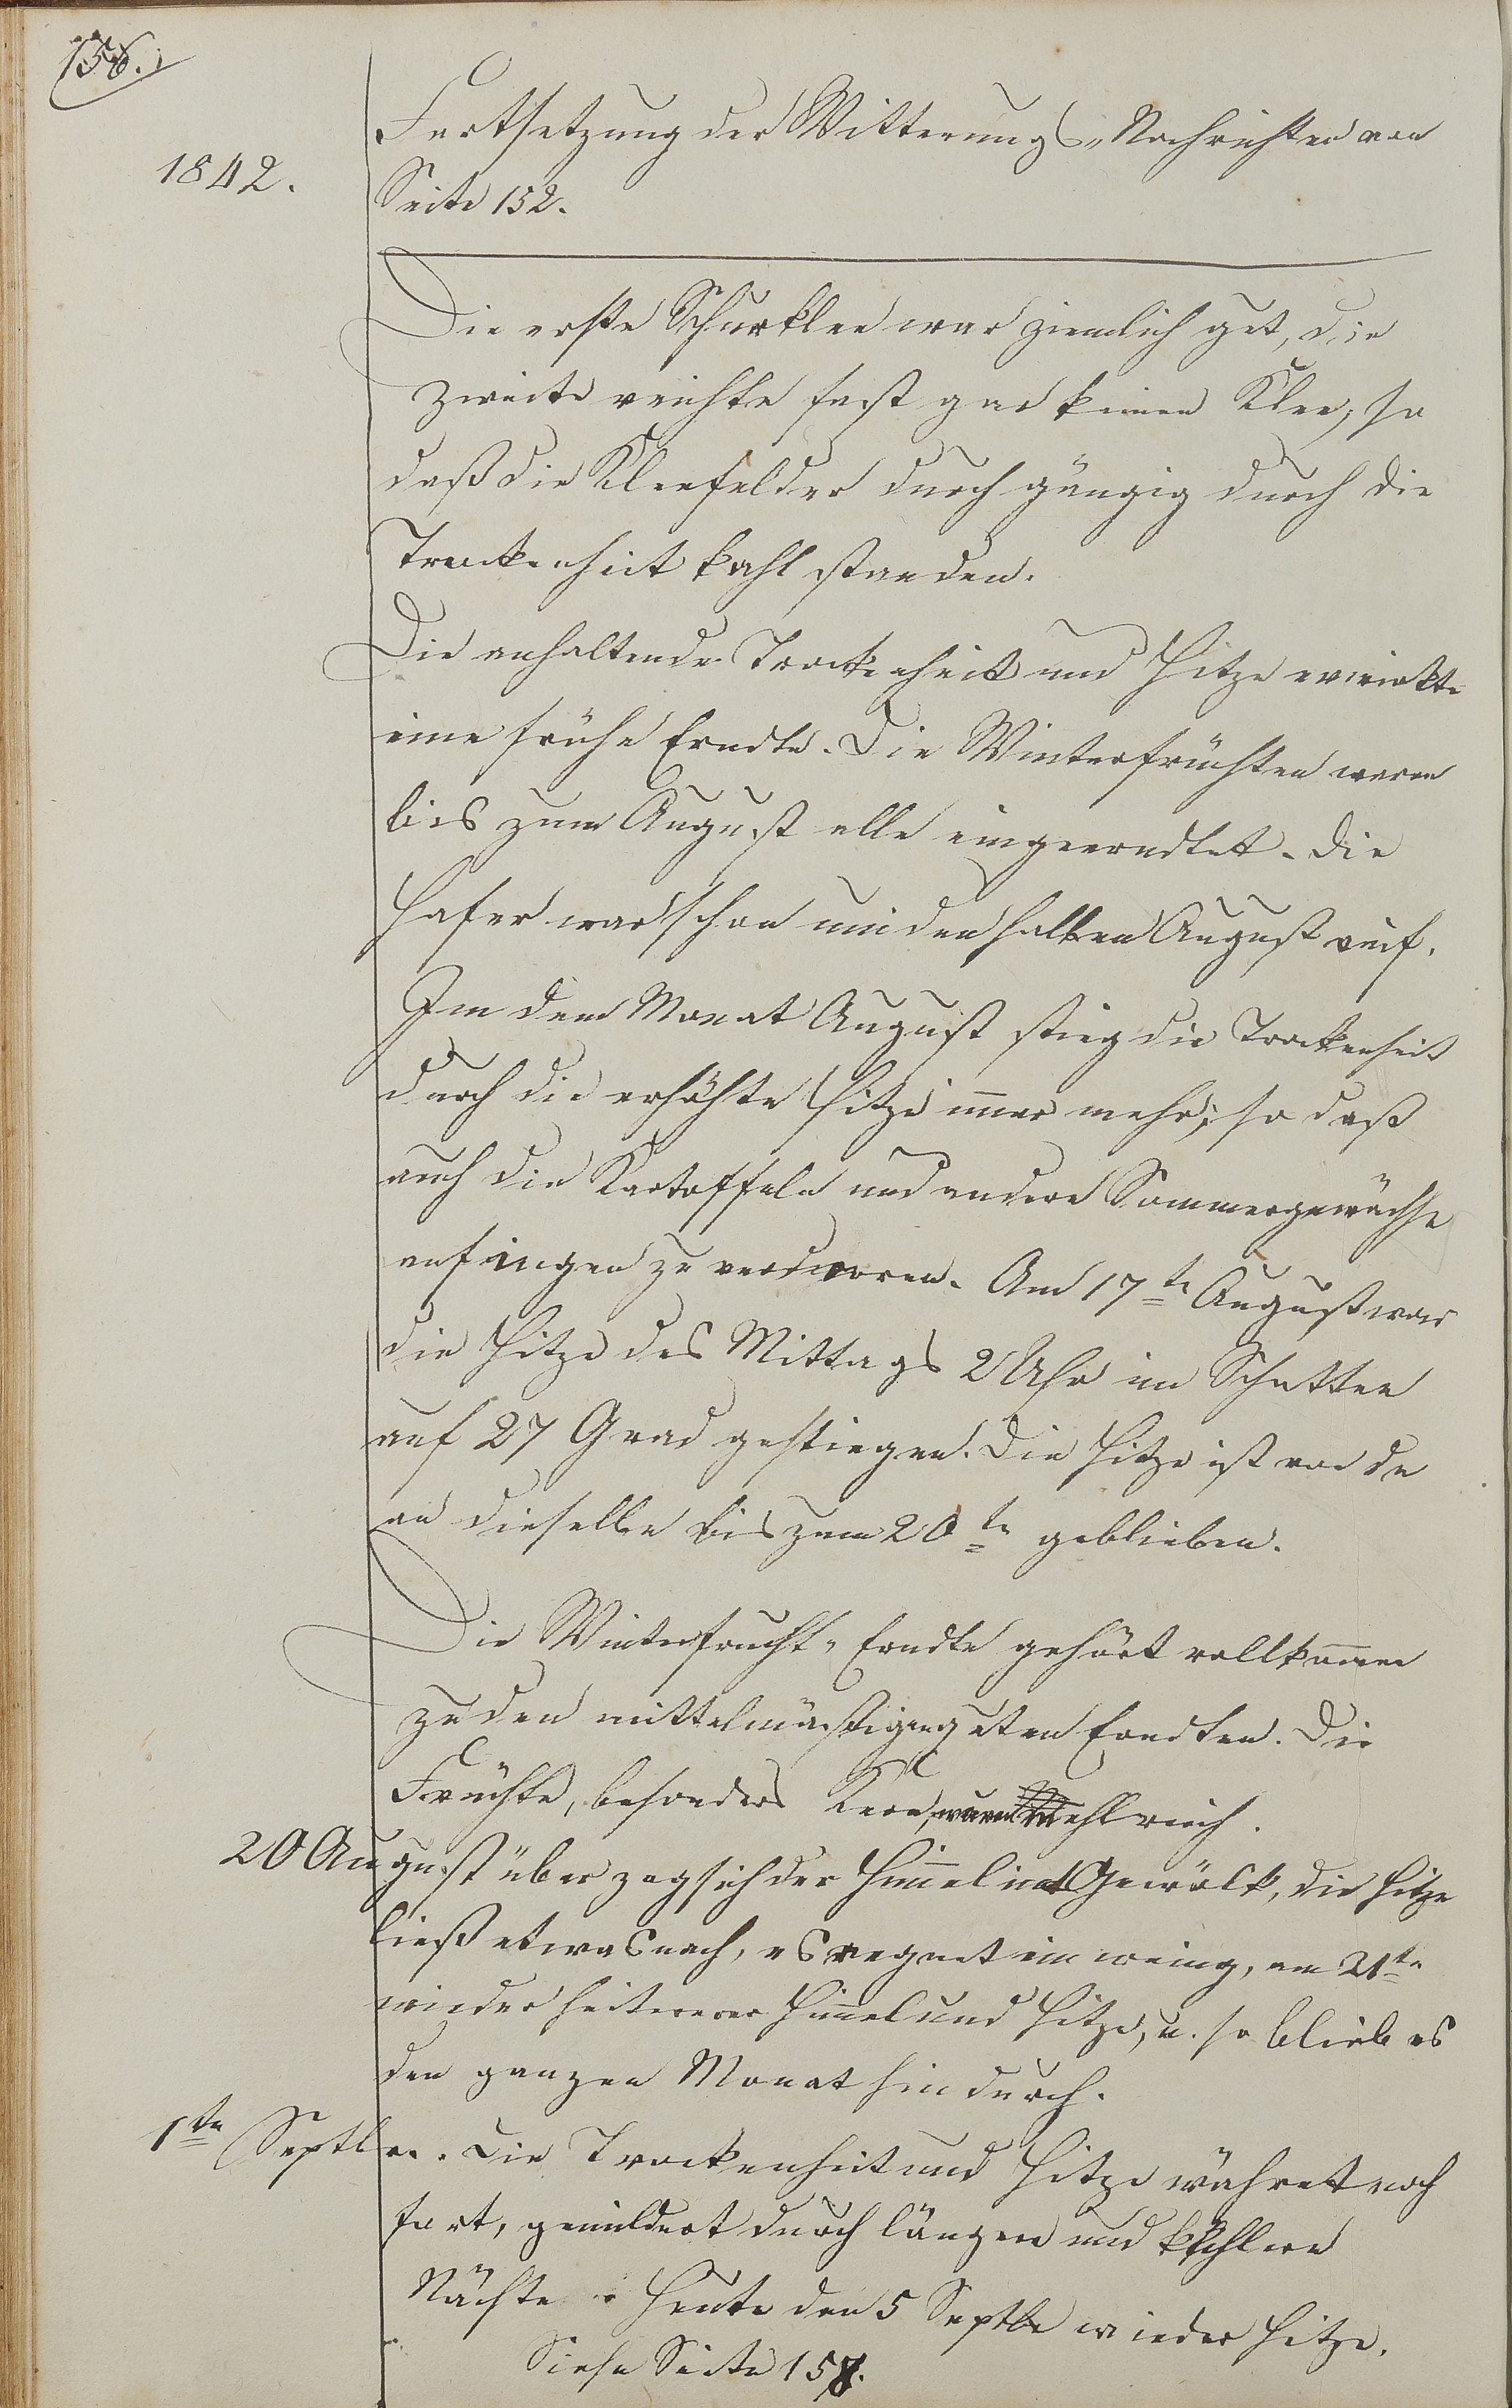 156.
1842.
Fortsetzung der Witterungs-Nachrichten von
Seite 152.
Die erste Schurklee war ziemlich gut, die
zweite reichte fast gar keinen Klee, so
daß die Kleefelder durchgängig durch die
Trockenheit kahl standen.
Die anhaltende Trockenheit und Hitze erwirkte
eine frühe Erndte. Die Winterfrüchten waren
bis zum August alle eingeerndtet. Die
Hafer war schon um den halben August reif.
In dem Monat August stieg die Trockenheit
durch die erhöhte Hitze immer mehr, so daß
auch die Kartoffeln und andere Sommergewächse
anfingen zu verdorren. Am 17te August war
die Hitze des Mittags 2 Uhr im Schatten
auf 27 Grad gestiegen. Die Hitze ist von da
an dieselbe bis zum 20te geblieben.
Die Winterfrucht-Erndte gehört vollkommen
zu den mittelmäßigguten Erndten. Die
Früchte, besonders Kern, waren mehlreich.
20 August überzog sich der Himmel mit Gewölk, die Hitze
ließ etwas nach, es regnet ein wenig, am 21te
wieder heiterer Himmel und Hitze, u. so blieb es
den ganzen Monat hindurch.
1te Septbr. Die Trockenheit und Hitze währet noch
fort, gemildert durch längere und kühlere
Nächte. Heute den 5 Septbr wieder Hitze.
Siehe Seite 158.